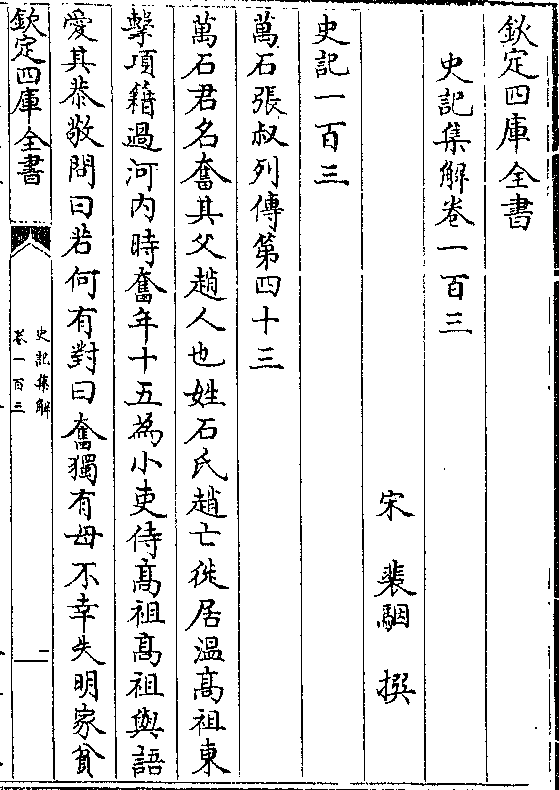 欽定四庫全書
史記集解卷一百三
宋 裴駰 撰
史記一百三
萬石張叔列傳第四十三
萬石君名奮其父趙人也姓石氏趙亡徙居温髙祖東
擊項籍過河内時奮年十五為小吏侍髙祖髙祖與語
愛其恭敬問曰若何有對曰奮獨有母不幸失明家貧
欽定四庫全書
史記集解
卷一百三
一